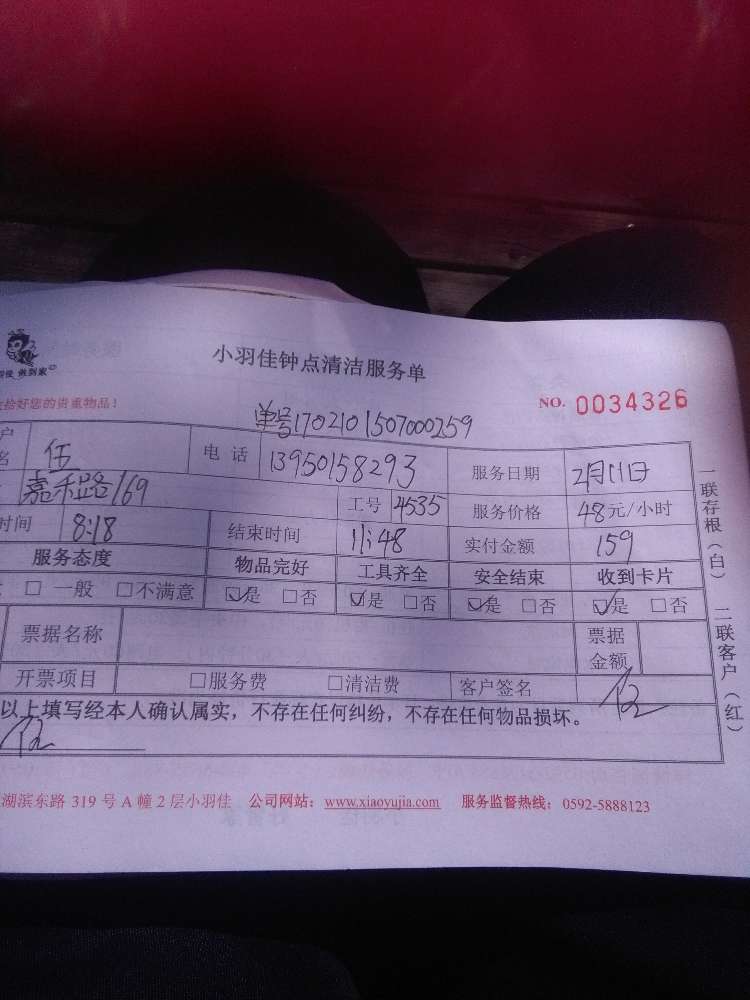 小羽佳钟点清洁服务单
做到家
拾好您的贵重物品！
NO. 0034326
单号1702101507000259
户名 伍 电话 13950158293 服务日期 2月11日
嘉禾路169 工号 4535 服务价格 48元/小时
时间 8:18 结束时间 11:48 实付金额 159
服务态度 物品完好 工具齐全 安全结束 收到卡片
□ 一般 □不满意 ☑是 □否 ☑是 □否 ☑是 □否 ☑是 □否
票据名称 票据金额
开票项目 □服务费 □清洁费 客户签名 伍
以上填写经本人确认属实，不存在任何纠纷，不存在任何物品损坏。
伍
湖滨东路 319 号 A 幢 2 层小羽佳 公司网站：www.xiaoyujia.com 服务监督热线：0592-5888123
一联存根（白） 二联客户（红）